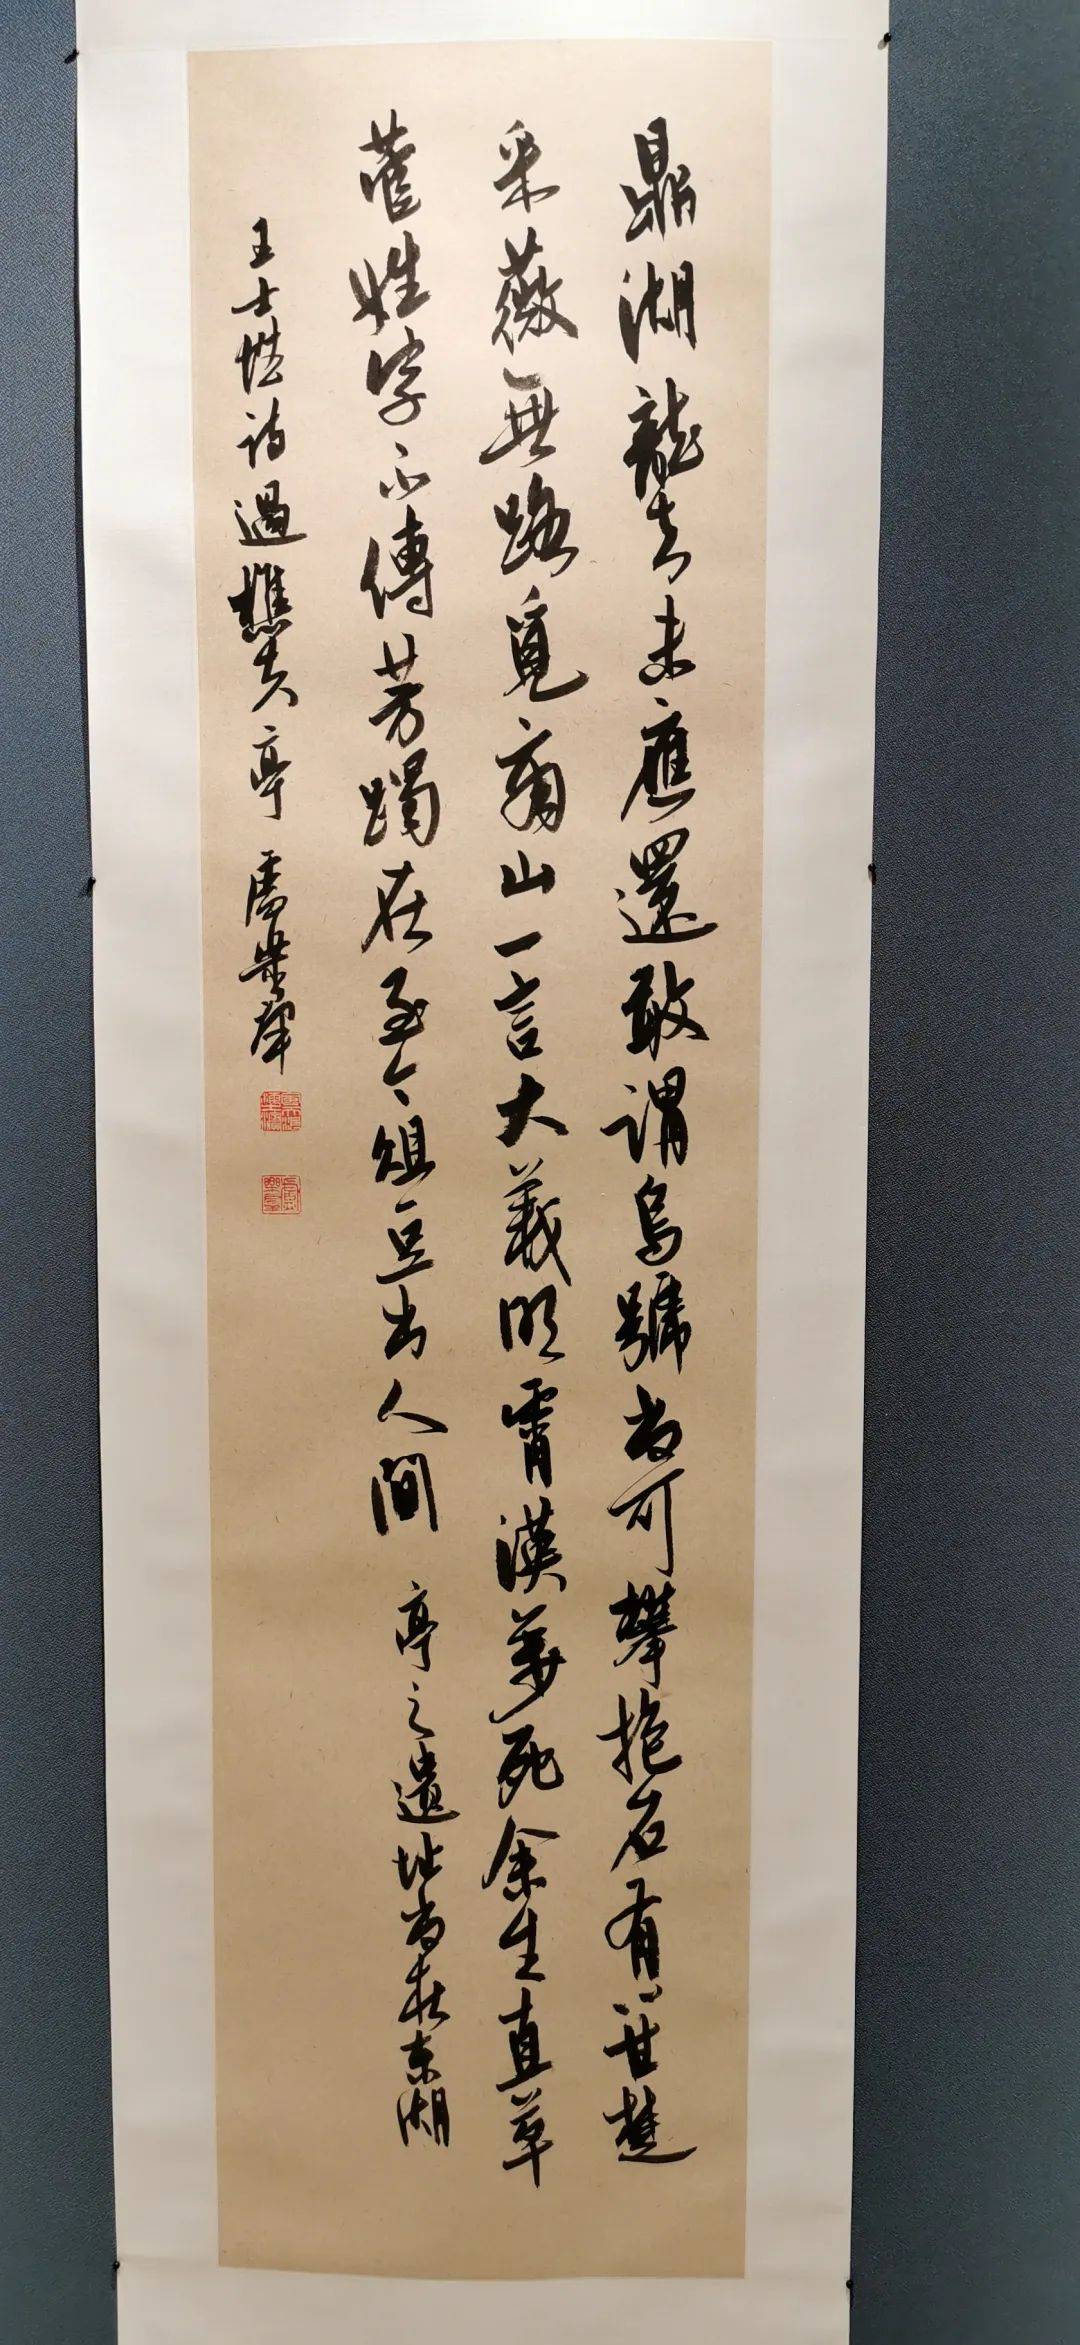 鼎湖龍去未應還敢謂烏號尚可攀抱石有心甘楚
采薇無路覓商山一言大義明霄漢萬死余生直草
菅姓字不傳芳躅在至今俎豆出人間 亭之遺址尚在東湖
王士詩過樵夫亭 盧樂群